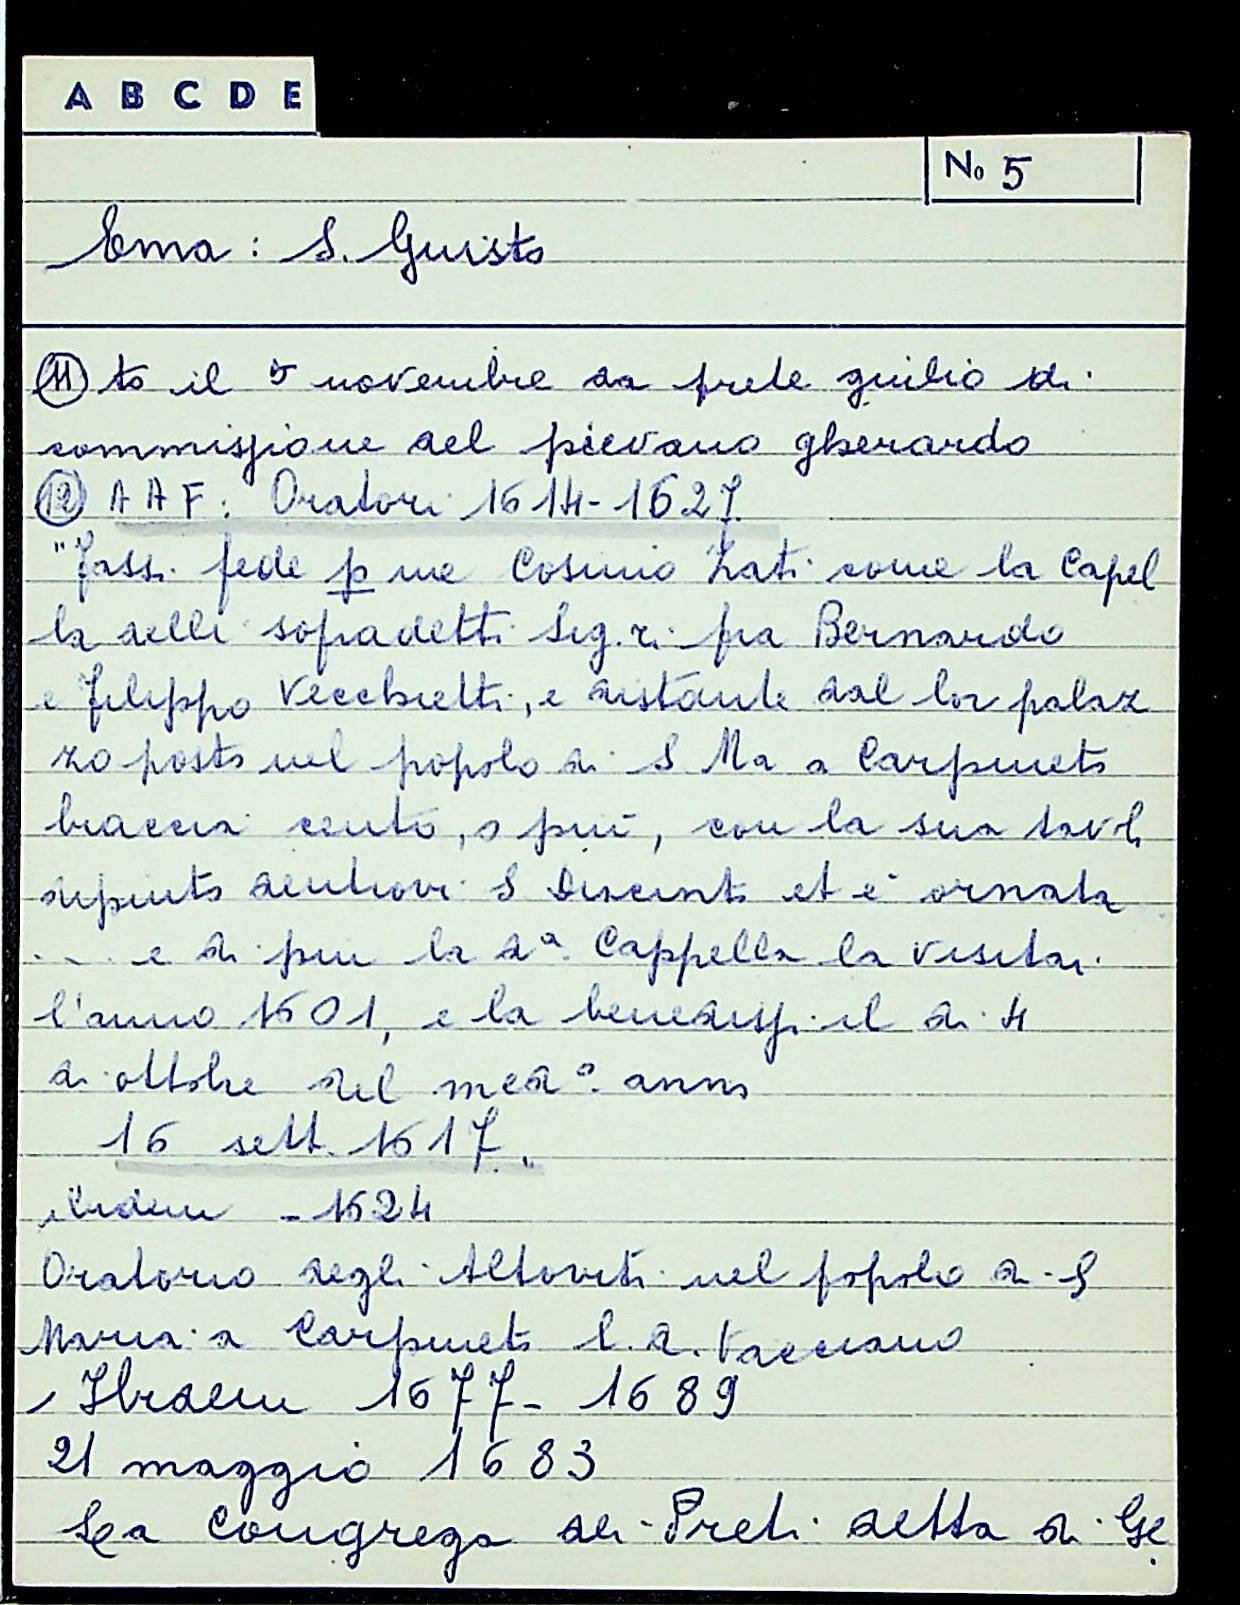 A B C D E
No 5
Ema: S. Giusto
(11) to il 5 novembre da prete giulio di
commissione del pievano gherardo
(12) A A F: Oratori 1614-1627
"Fassi fede p me Cosimo Zati come la Capel
la delli sopradetti Sig.ri fra Bernardo
e Filippo Vecchietti, e distante dal lor palaz
zo posto nel popolo di S Ma a Carpineto
braccia cento, o più, con la sua tavol
dipinto dentrovi S Diacinto et è ornata
.... e di piu la da Cappella la visitai
l'anno 1601, e la benedissi il di 4
di ottobre del medo. anno
16 sett. 1617."
ibidem - 1624
Oratorio degli Altoviti nel popolo di S
Maria a Carpineto l. d. Vacciano
Ibidem 1677- 1689
21 maggio 1683
La Congrega dei Preti detta di Ge